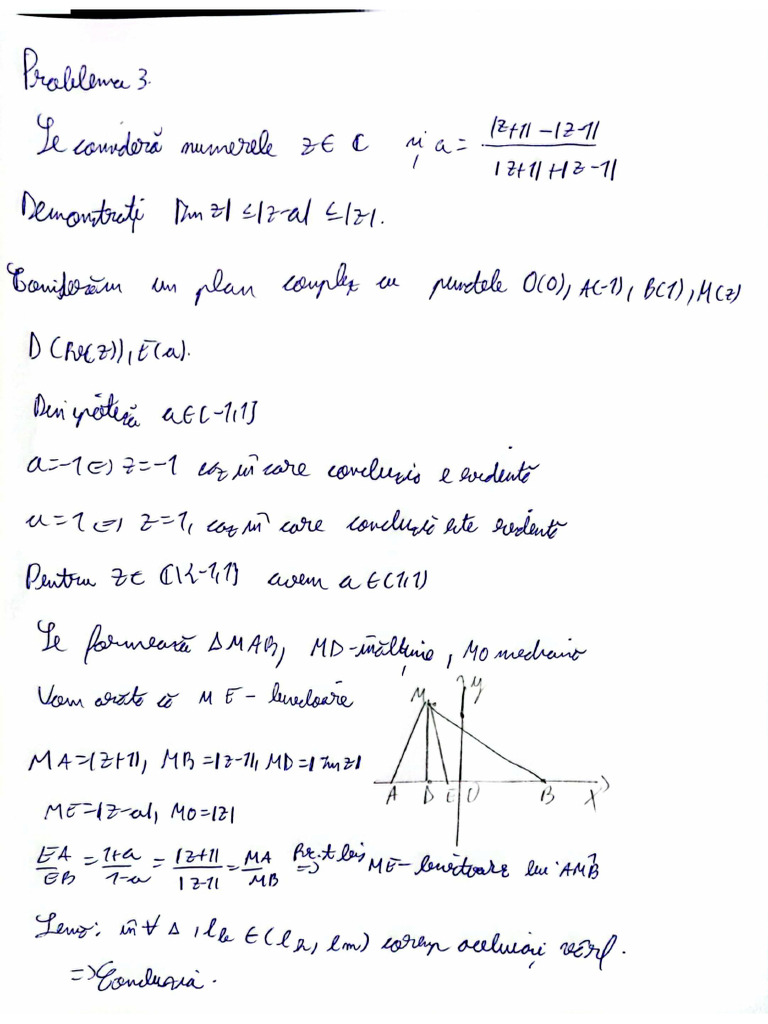 Problema 3.
Se consideră numerele z ∈ ℂ și a = (|z+1| - |z-1|) / (|z+1| + |z-1|)
Demonstrați |Im z| ≤ |z-a| ≤ |z|.
Considerăm un plan complex cu punctele O(0), A(-1), B(1), M(z)
D(Re(z)), E(a).
Din ipoteză a ∈ [-1,1]
a=-1 ⇔ z=-1 caz în care concluzia e evidentă
a=1 ⇔ z=1, caz în care concluzia este evidentă
Pentru z ∈ ℂ\{-1,1} avem a ∈ (1,1)
Se formează ΔMAB, MD-înălțime, MO mediană
Vom arăta că ME - bisectoare
M y
MA=|z+1|, MB=|z-1|, MD=|Im z|
A D E O B X
ME=|z-a|, MO=|z|
EA/EB = (1+a)/(1-a) = |z+1|/|z-1| = MA/MB ⇒ ME- lui AMB
: în ∀ Δ, lb ∈ (lh, lm) coresp aceluiași vârf.
⇒ Concluzia.